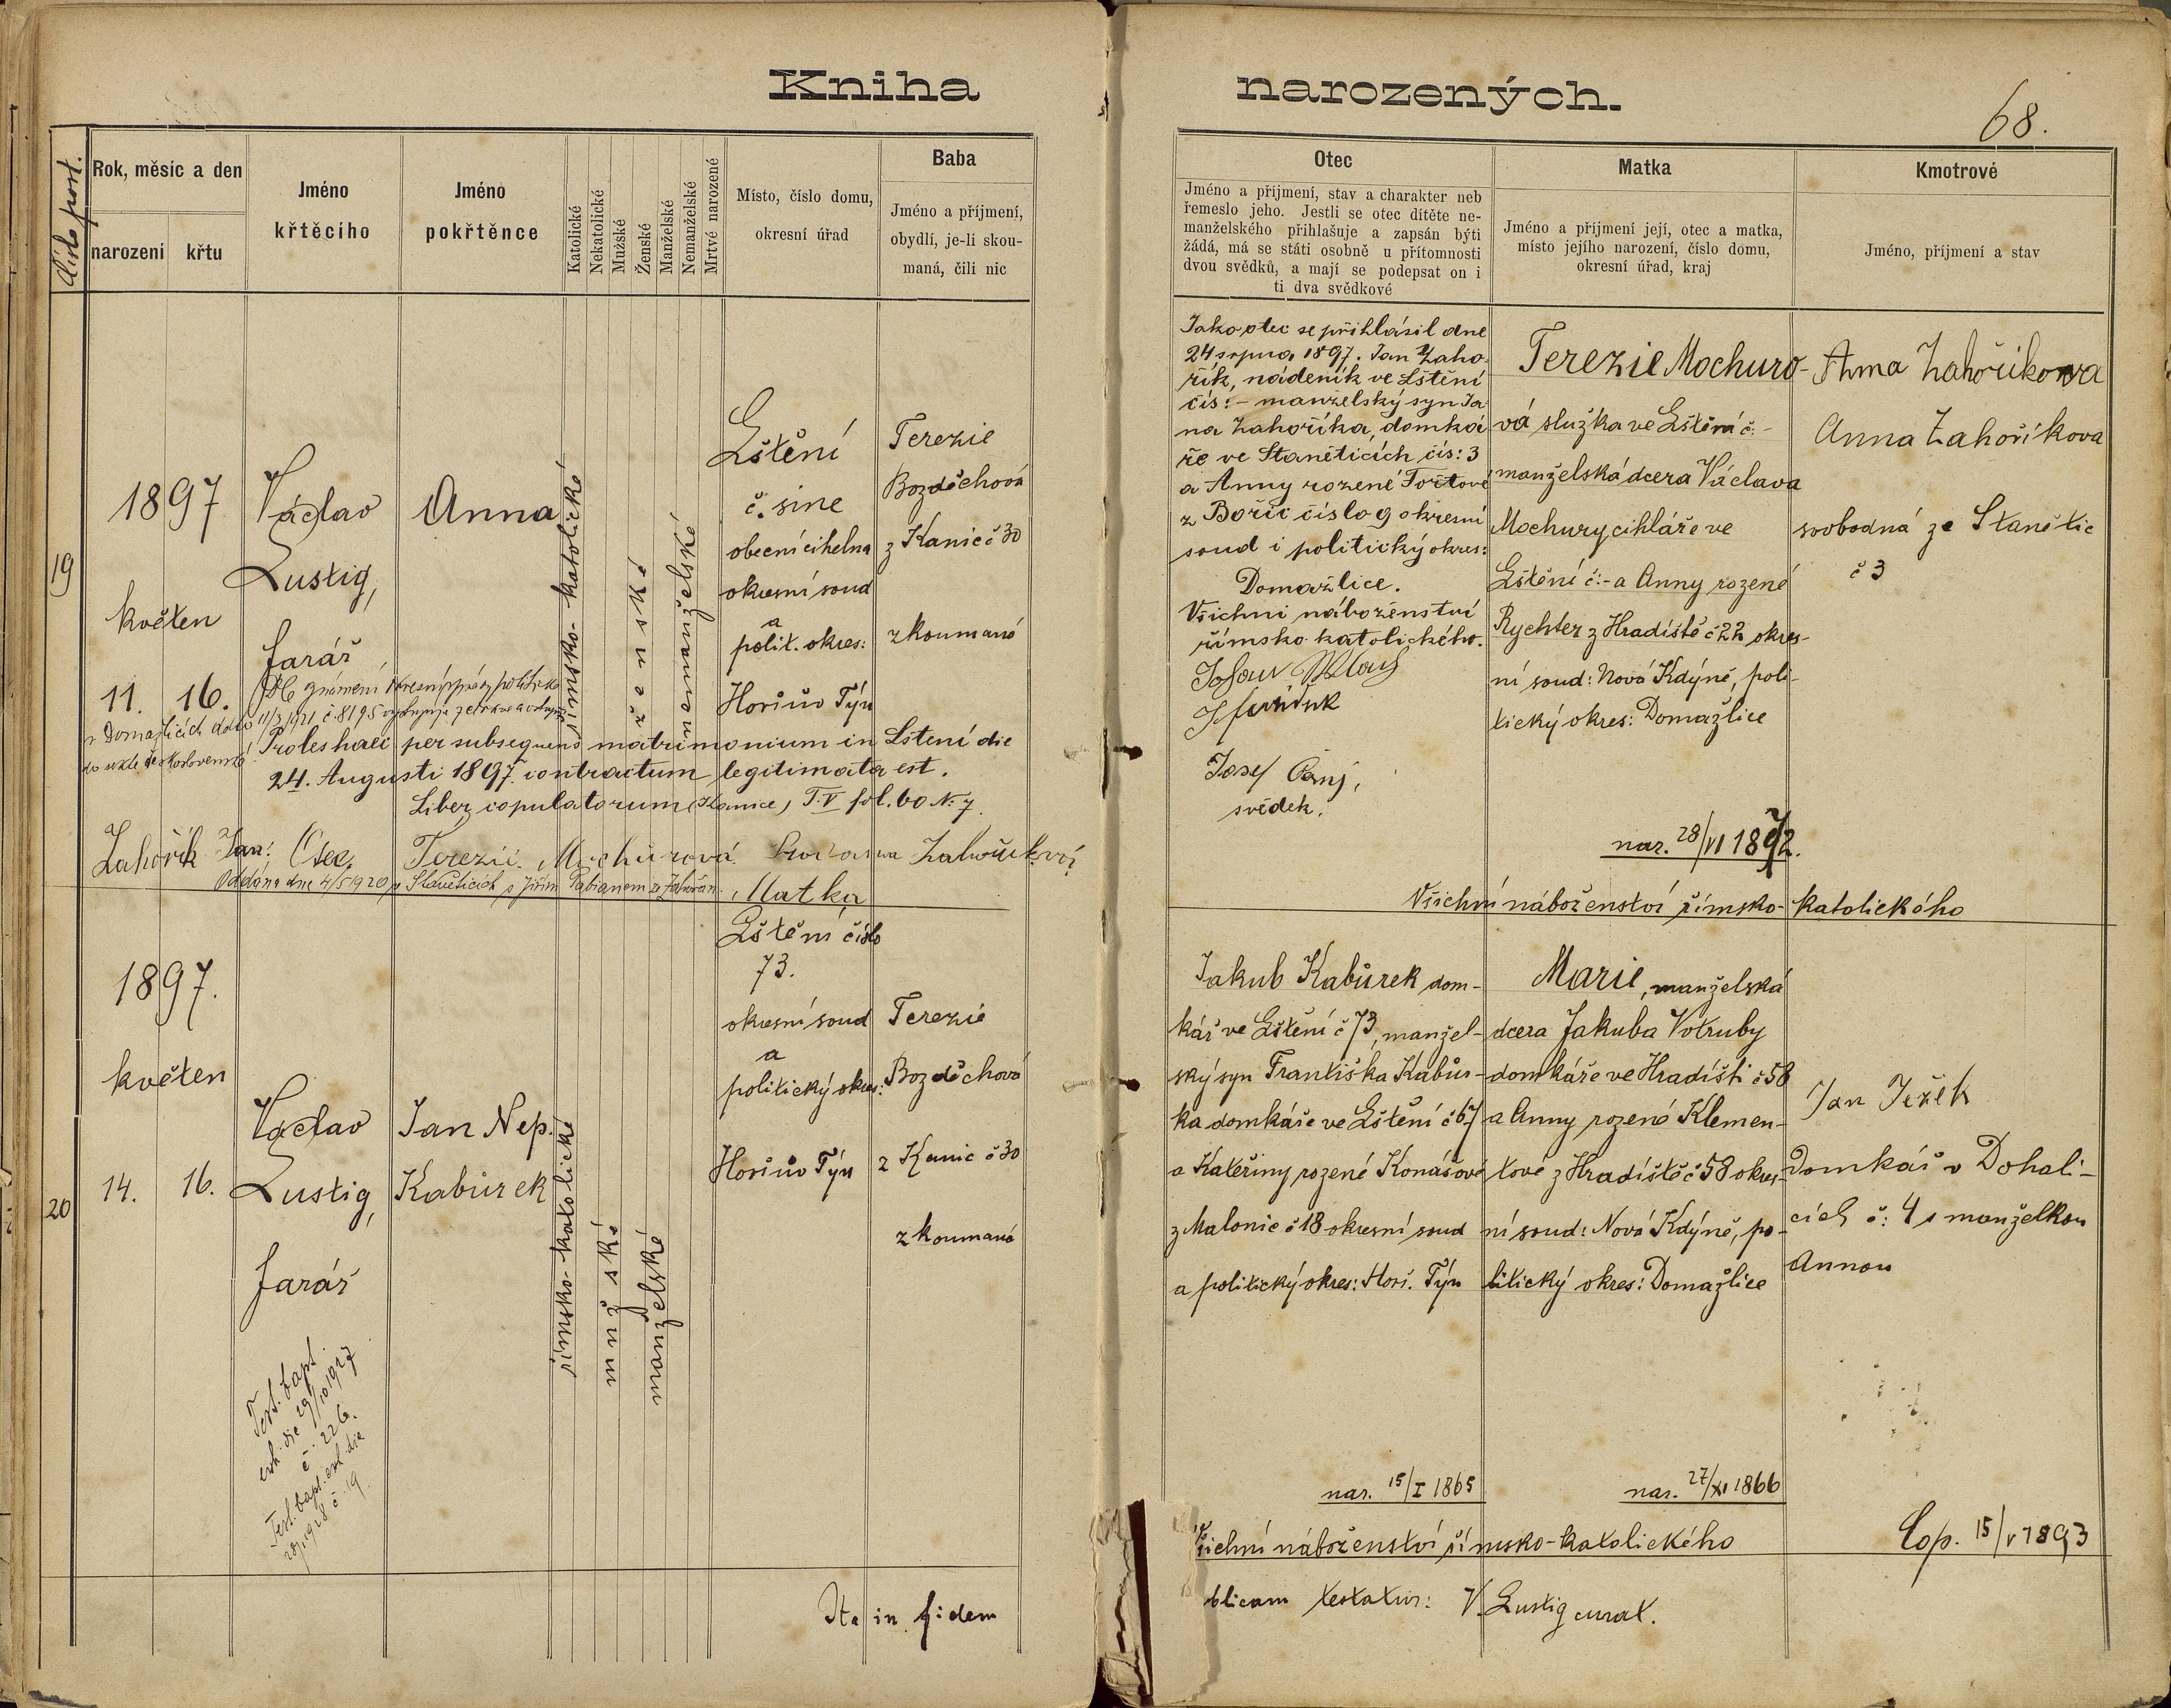 Kniha narozených.
68.
Číslo post.
Rok, měsíc a den
narození
křtu
Jméno
křtěcího
Jméno
pokřtěnce
Katolické
Nekatolické
Mužské
Ženské
Manželské
Nemanželské
Mrtvé narozené
Místo, číslo domu,
okresní úřad
Baba
Jméno a příjmení,
obydlí, je-li skou-
maná, čili nic
Otec
Jméno a příjmení, stav a charakter neb
řemeslo jeho. Jestli se otec dítěte ne-
manželského přihlašuje a zapsán býti
žádá, má se státi osobně u přítomnosti
dvou svědků, a mají se podepsat on i
ti dva svědkové
Matka
Jméno a příjmení její, otec a matka,
místo jejího narození, číslo domu,
okresní úřad, kraj
Kmotrové
Jméno, příjmení a stav
19
1897
květen
11. 16.
Václav
Lustig,
farář
Anna
římsko-katolické
ženské
nemanželské
Lštění
č. sine
obecní cihelna
okresní soud
a
polit. okres:
Horšův Týn
Terezie
Bozděchová
z Kanic č 30
zkoumaná
v Domažlicích dato 11/3 1921 č. 8195 vystupuje z církve a vstupuje
Proles haec per subsequens matrimonium in Lštění die
24. Augusti 1897 contractum legitimata est.
Liber copulatorum (Kanice) T. V fol. 60 N. 7.
Zahořík Jan, Otec. Terezie Mochurová
Matka
Oddána dne 4/5 1920 v Staněticích s Jiřím Fabianem ze Zahořan.
Jako otec se přihlásil dne
24 srpna 1897. Jan Zaho-
řík, nádeník ve Lštění
čís: - manželský syn Ja-
na Zahoříka, domká
ře ve Staněticích čís: 3
a Anny rozené Tořtové
z Bořic číslo 9 okresní
soud i politický okres:
Domažlice.
Všichni náboženství
římsko katolického.
Josef Černý,
svědek.
Terezie Mochuro-
vá služka ve Lštění č: -
manželská dcera Václava
Mochury cihláře ve
Lštění č: - a Anny rozené
Rychter z Hradiště č 22 okres-
ní soud: Nová Kdýně, poli-
tický okres: Domažlice
nar. 28/VI 1872.
Všichni náboženství římsko-katolického
Anna Zahoříkova
Anna Zahoříkova
svobodná ze Stanětic
č 3
20
1897.
květen
14. 16.
Václav
Lustig,
farář
Jan Nep.
Kabůrek
římsko-katolické
mužské
manželské
Lštění číslo
73.
okresní soud
a
politický okres:
Horšův Týn
Terezie
Bozděchová
z Kanic č 30
zkoumaná
Test. bapt.
exh. die 29/10 1927
č. 226.
Test. bapt. exh. die
1928 č. 19
Jakub Kabůrek dom-
kář ve Lštění č 73, manžel-
ský syn Františka Kabůr-
ka domkáře ve Lštění č 67
a Kateřiny rozené Konášové
z Malonic č 18 okresní soud
a politický okres: Horš. Týn
nar. 15/I 1865
Marie, manželská
dcera Jakuba Votruby
domkáře ve Hradišti č 58
a Anny rozené Klemen-
tové z Hradiště č 58 okres-
ní soud: Nová Kdýně, po-
litický okres: Domažlice
nar. 27/XI 1866
Jan Ježek
Domkář v Dohali-
cích č: 4 s manželkou
Annou
Všichni náboženství římsko-katolického
Cop. 15/V 1893
Ita in fidem
blicam testatur: V. Lustig curat.